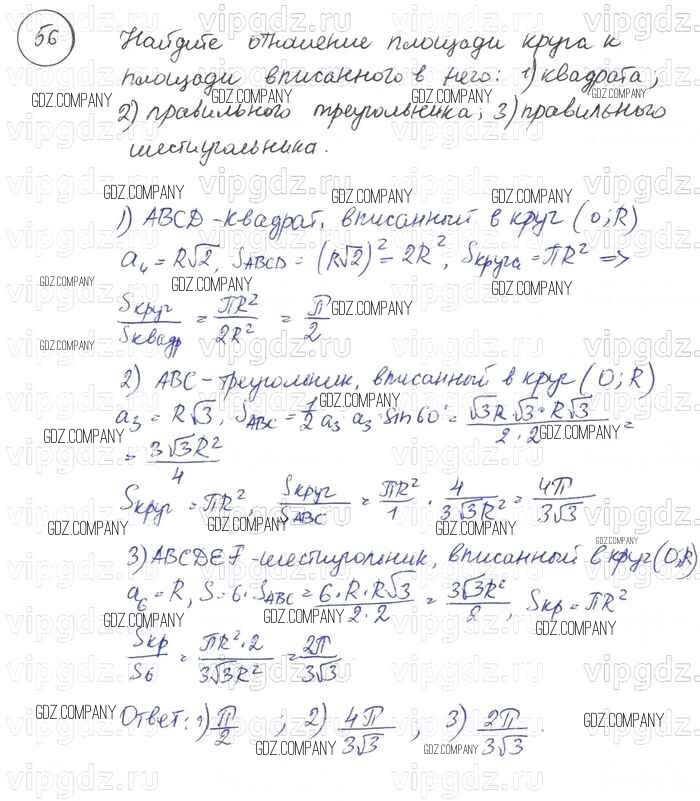 56
Найдите отношение площади круга к
площади вписанного в него: 1) квадрата;
2) правильного треугольника; 3) правильного
шестиугольника.
1) ABCD - квадрат, вписанный в круг (O; R)
a₄ = R√2, S_ABCD = (R√2)² = 2R², Sкруга = πR² =>
Sкруг / Sквадр = πR² / 2R² = π / 2
2) ABC - треугольник, вписанный в круг (O; R)
a₃ = R√3, S_ABC = 1/2 a₃ a₃ · sin 60° = √3R · √3 · R√3 / 2 · 2 =
= 3√3R² / 4
Sкруг = πR², Sкруг / S_ABC = πR² / 1 · 4 / 3√3R² = 4π / 3√3
3) ABCDEF - шестиугольник, вписанный в круг (O; R)
a₆ = R, S = 6 · S_ABC = 6 · R · R√3 / 2 · 2 = 3√3R² / 2, Sкр = πR²
Sкр / S₆ = πR² · 2 / 3√3R² = 2π / 3√3
Ответ: 1) π/2 ; 2) 4π / 3√3 ; 3) 2π / 3√3.
GDZ.COMPANY
vipgdz.ru